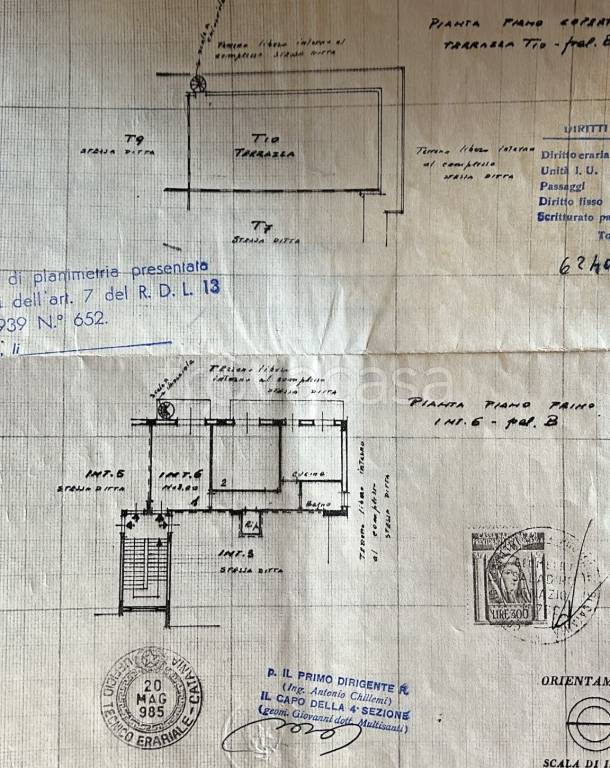 PIANTA PIANO COPERT
TERRAZZA T10 - pal. B
scala a chiocciola
Terreno libero interno al
complesso STESSA DITTA
T9
STESSA DITTA
T10
TERRAZZA
Terreno libero interno
al complesso
STESSA DITTA
T7
STESSA DITTA
DIRITTI
Diritto eraria
Unità I. U.
Passaggi
Diritto fisso
Scritturato pa
To
di planimetria presentata
dell'art. 7 del R. D. L. 13
939 N.° 652.
, li
scala a chiocciola
Terreno libero
interno al complesso
STESSA DITTA
casa
PIANTA PIANO PRIMO
INT. 6 - pal. B
INT. 5
STESSA DITTA
INT. 6
2
1
cucina
Bagno
Rip.
INT. 3
STESSA DITTA
Terreno libero interno
al complesso
STESSA DITTA
LIRE 300
UFFICIO TECNICO ERARIALE - CATANIA
20
MAG
985
p. IL PRIMO DIRIGENTE
(Ing. Antonio Chillemi)
IL CAPO DELLA 4ª SEZIONE
(geom. Giovanni dott. Multisanti)
ORIENTAM
SCALA DI 1